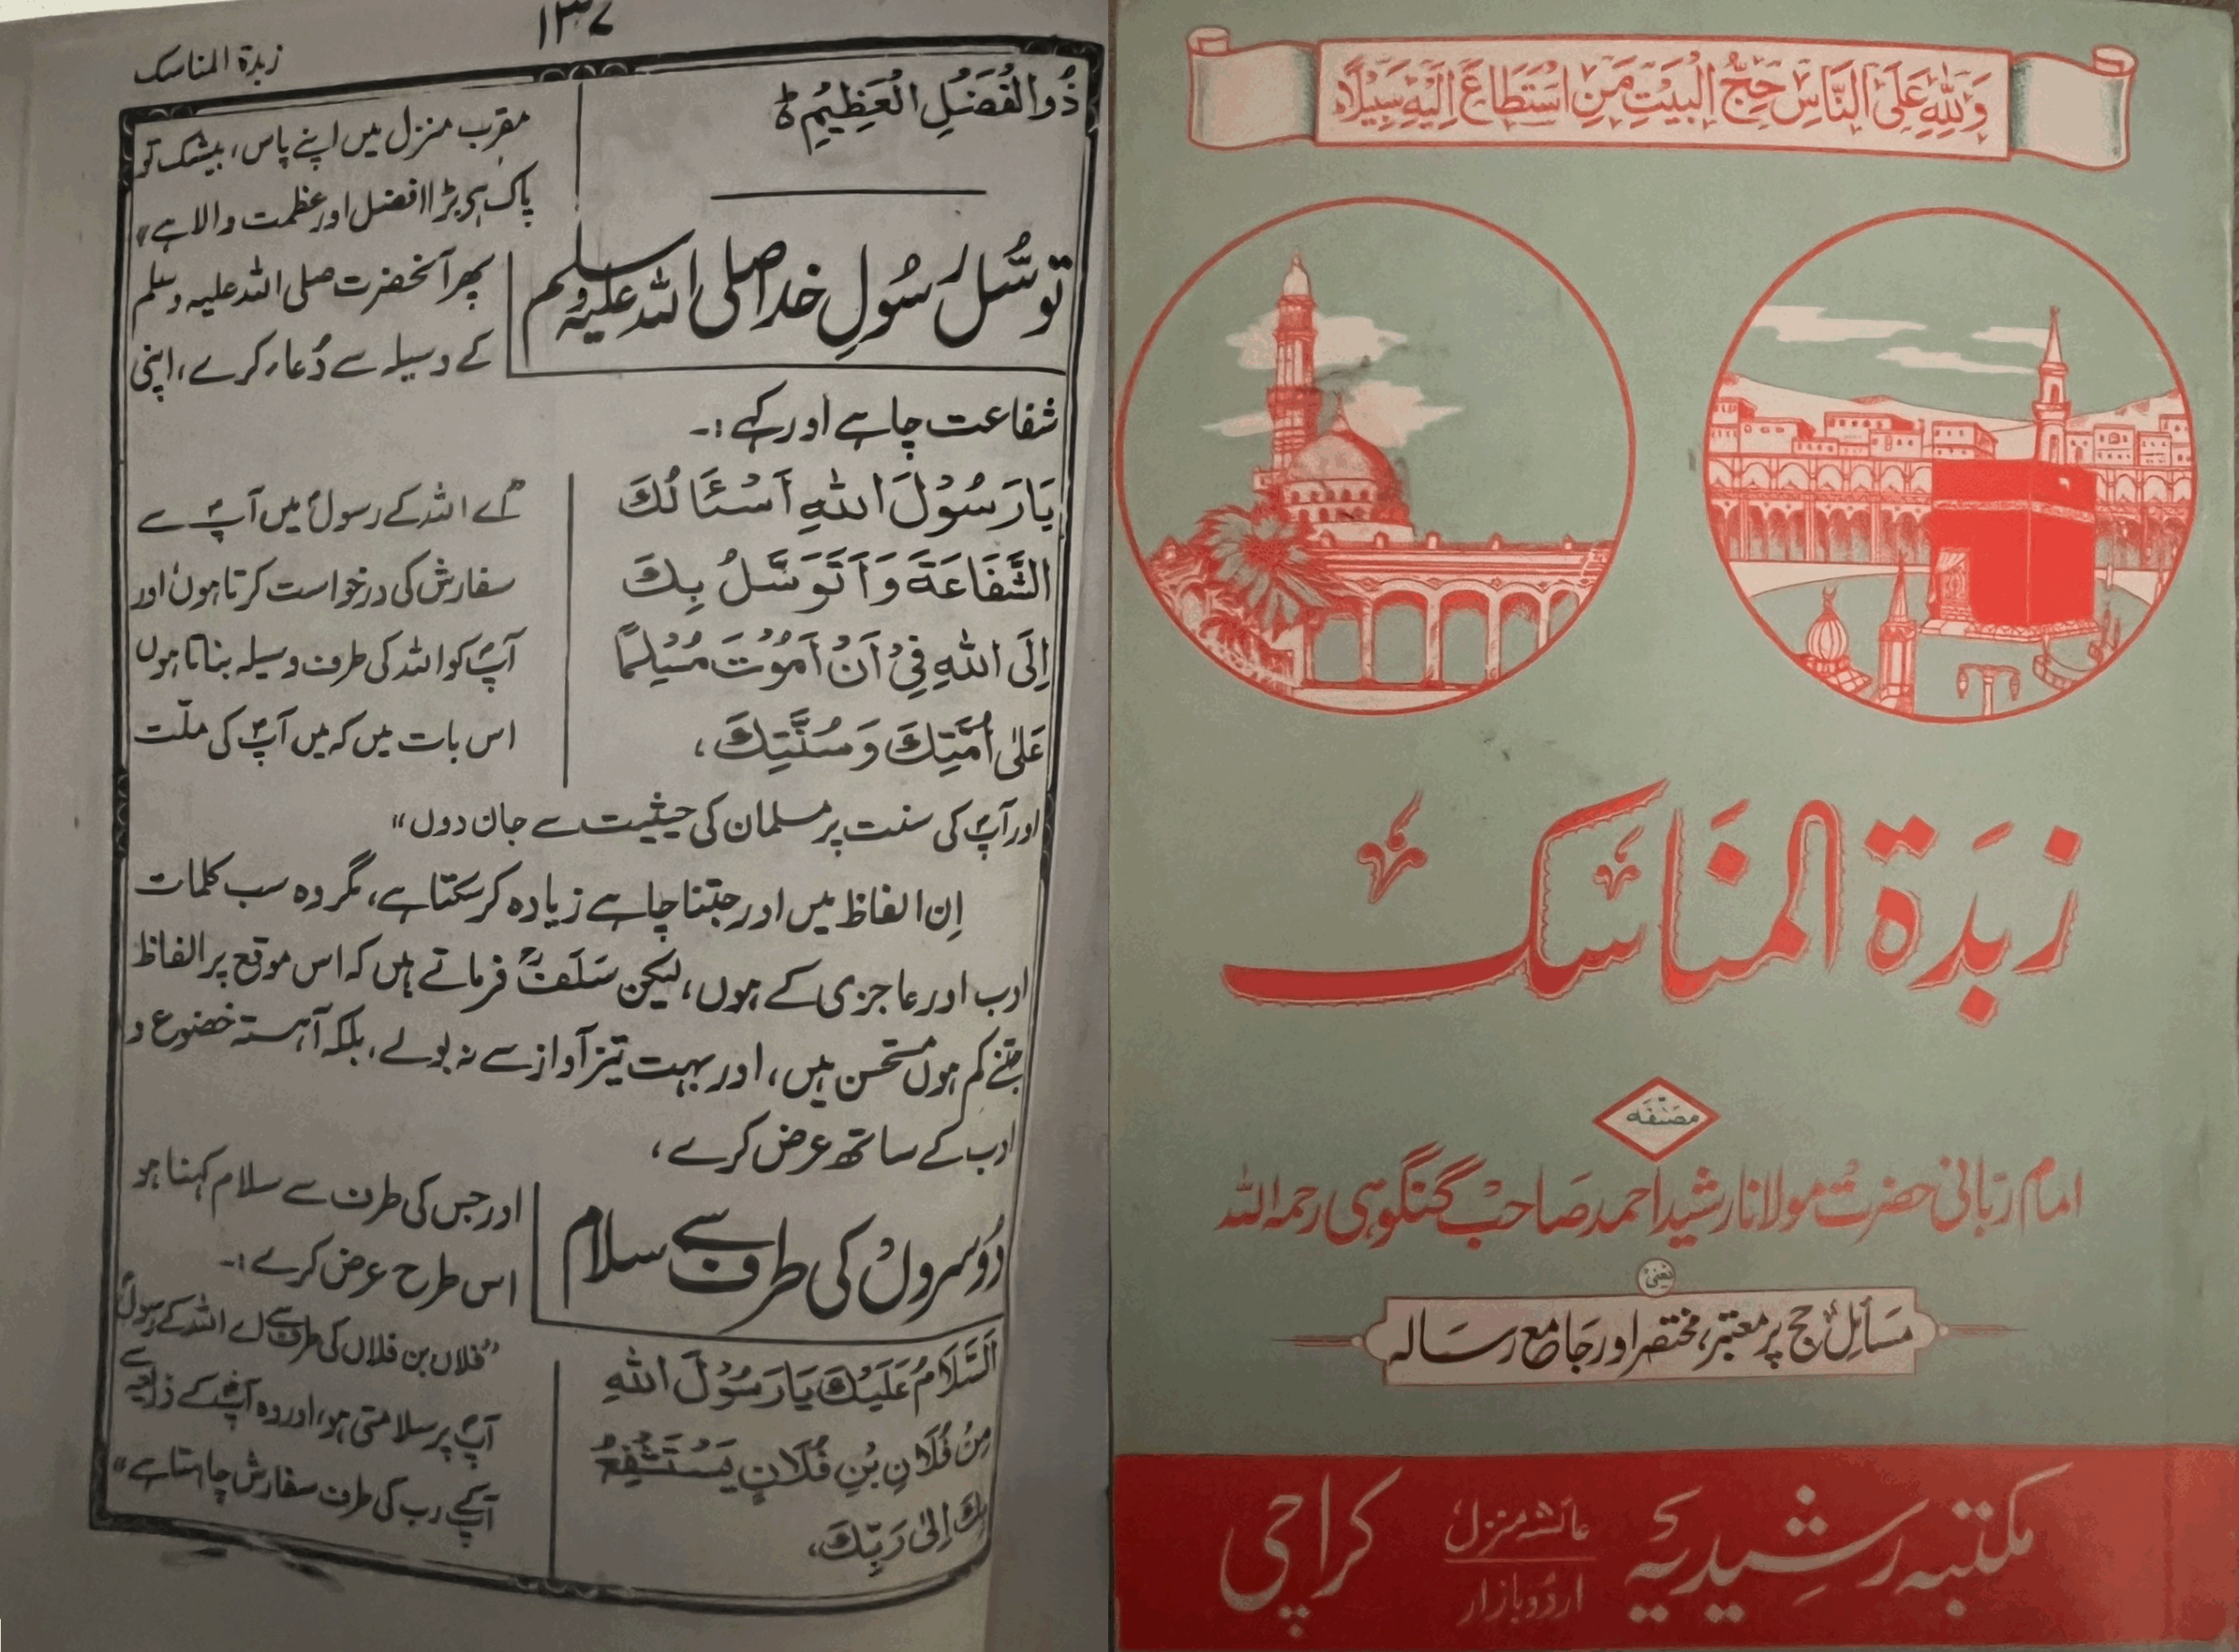 ۱۳۷
زبدۃ المناسک
ذُوالْفَضْلِ الْعَظِيْمِ ط
مقرب منزل میں اپنے پاس، بیشک تو
پاک ہی بڑا افضل اور عظمت والا ہے"
توسُّل رسُولِ خدا صلی اللہ علیہ وسلم
پھر آنحضرت صلی اللہ علیہ وسلم
کے وسیلہ سے دُعاء کرے، اپنی
شفاعت چاہے اور کہے :۔
يَا رَسُوْلَ اللهِ اَسْئَالُكَ
الشَّفَاعَةَ وَاَتَوَسَّلُ بِكَ
اِلَى اللهِ فِيْ اَنْ اَمُوْتَ مُسْلِمًا
عَلىٰ اُمَّتِكَ وَسُنَّتِكَ،
"اے اللہ کے رسولؐ میں آپؐ سے
سفارش کی درخواست کرتا ہوں اور
آپؐ کو اللہ کی طرف وسیلہ بناتا ہوں
اس بات میں کہ میں آپؐ کی ملّت
اور آپؐ کی سنت پر مسلمان کی حیثیت سے جان دوں"
اِن الفاظ میں اور جتنا چاہے زیادہ کرسکتا ہے، مگر وہ سب کلمات
ادب اور عاجزی کے ہوں، لیکن سَلَفؒ فرماتے ہیں کہ اس موقع پر الفاظ
جتنے کم ہوں مستحسن ہیں، اور بہت تیز آواز سے نہ بولے، بلکہ آہستہ خضوع و
ادب کے ساتھ عرض کرے،
دُوسروں کی طرف سے سلام
اور جس کی طرف سے سلام کہنا ہو
اس طرح عرض کرے :۔
اَلسَّلَامُ عَلَيْكَ يَا رَسُوْلَ اللهِ
مِنْ فُلَانِ بْنِ فُلَانٍ يَسْتَشْفِعُ
بِكَ اِلىٰ رَبِّكَ،
"فلاں بن فلاں کی طرف سے اے اللہ کے رسولؐ
آپؐ پر سلامتی ہو، اور وہ آپؐ کے ذریعہ سے
آپکے رب کی طرف سفارش چاہتا ہے"
وَلِلّٰهِ عَلَى النَّاسِ حِجُّ الْبَيْتِ مَنِ اسْتَطَاعَ اِلَيْهِ سَبِيْلًا
زبدۃ المناسک
مصنفہ
امام ربانی حضرت مولانا رشید احمد صاحب گنگوہی رحمہ اللہ
یعنی
مسائلِ حج پر معتبر، مختصر اور جامع رسالہ
مکتبہ رشیدیہ
عائشہ منزل
اردو بازار
کراچی